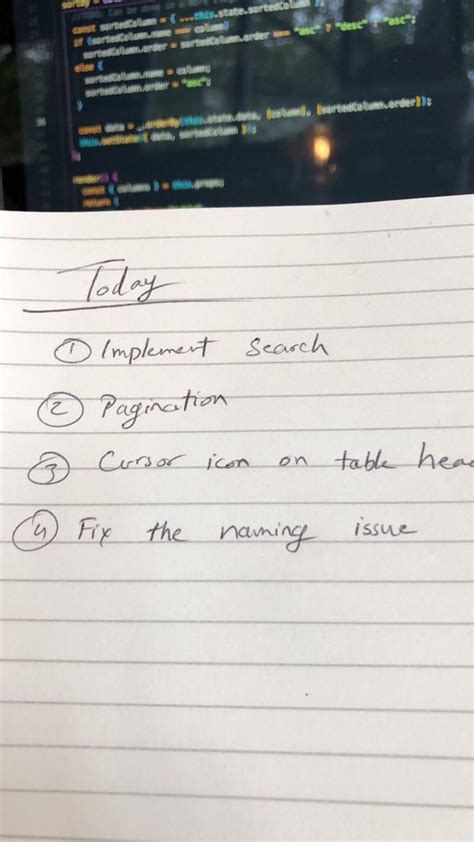 const sortedColumn = { ...this.state.sortedColumn };
if (sortedColumn.name === column)
sortedColumn.order = sortedColumn.order === "asc" ? "desc" : "asc";
else {
sortedColumn.name = column;
sortedColumn.order = "asc";
}
const data = _.orderBy(this.state.data, [column], [sortedColumn.order]);
this.setState({ data, sortedColumn });
};
render() {
const { columns } = this.props;
return (
Today
① Implement Search
② Pagination
③ Cursor icon on table head
④ Fix the naming issue